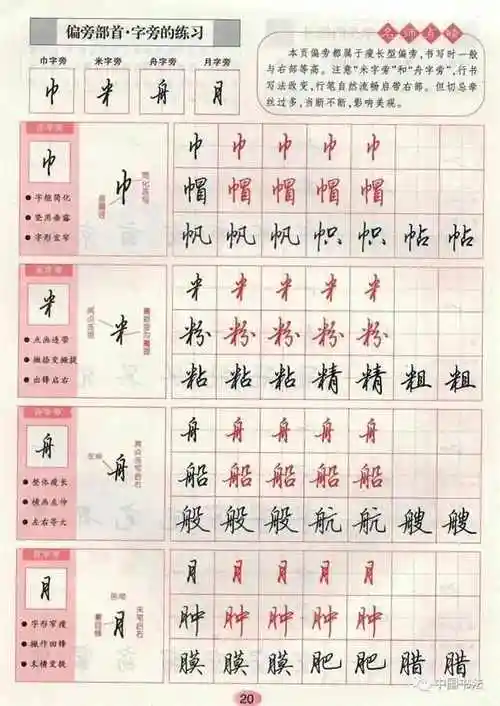 偏旁部首·字旁的练习
名师首晴
巾字旁 米字旁 舟字旁 月字旁
巾 米 舟 月
本页偏旁都属于瘦长型偏旁,书写时一般
与右部等高。注意“米字旁”和“舟字旁”,行书
写法改变,行笔自然流畅启带右部。但切忌牵
丝过多,当断不断,影响美观。
巾字旁
巾
字框简化
竖用垂露
字形宜窄
巾
巾 巾 巾 巾 巾
帽 帽 帽 帽 帽
帆 帆 帆 帜 帜 帖 帖
米字旁
米
点画连带
撇捺变撇提
出锋启右
米
两点连写
米 米 米 米 米
粉 粉 粉 粉 粉
粘 粘 粘 精 精 粗 粗
舟字旁
舟
整体瘦长
横画左伸
左右等大
舟
左伸
两点连写启右
舟 舟 舟 舟 舟
船 船 船 船 船
般 般 般 航 航 艘 艘
月字旁
月
字形窄瘦
撇作回锋
末横变提
月
末笔启右
月 月 月 月 月
肿 肿 肿 肿 肿
膜 膜 膜 肥 肥 腊 腊
20
中国书法